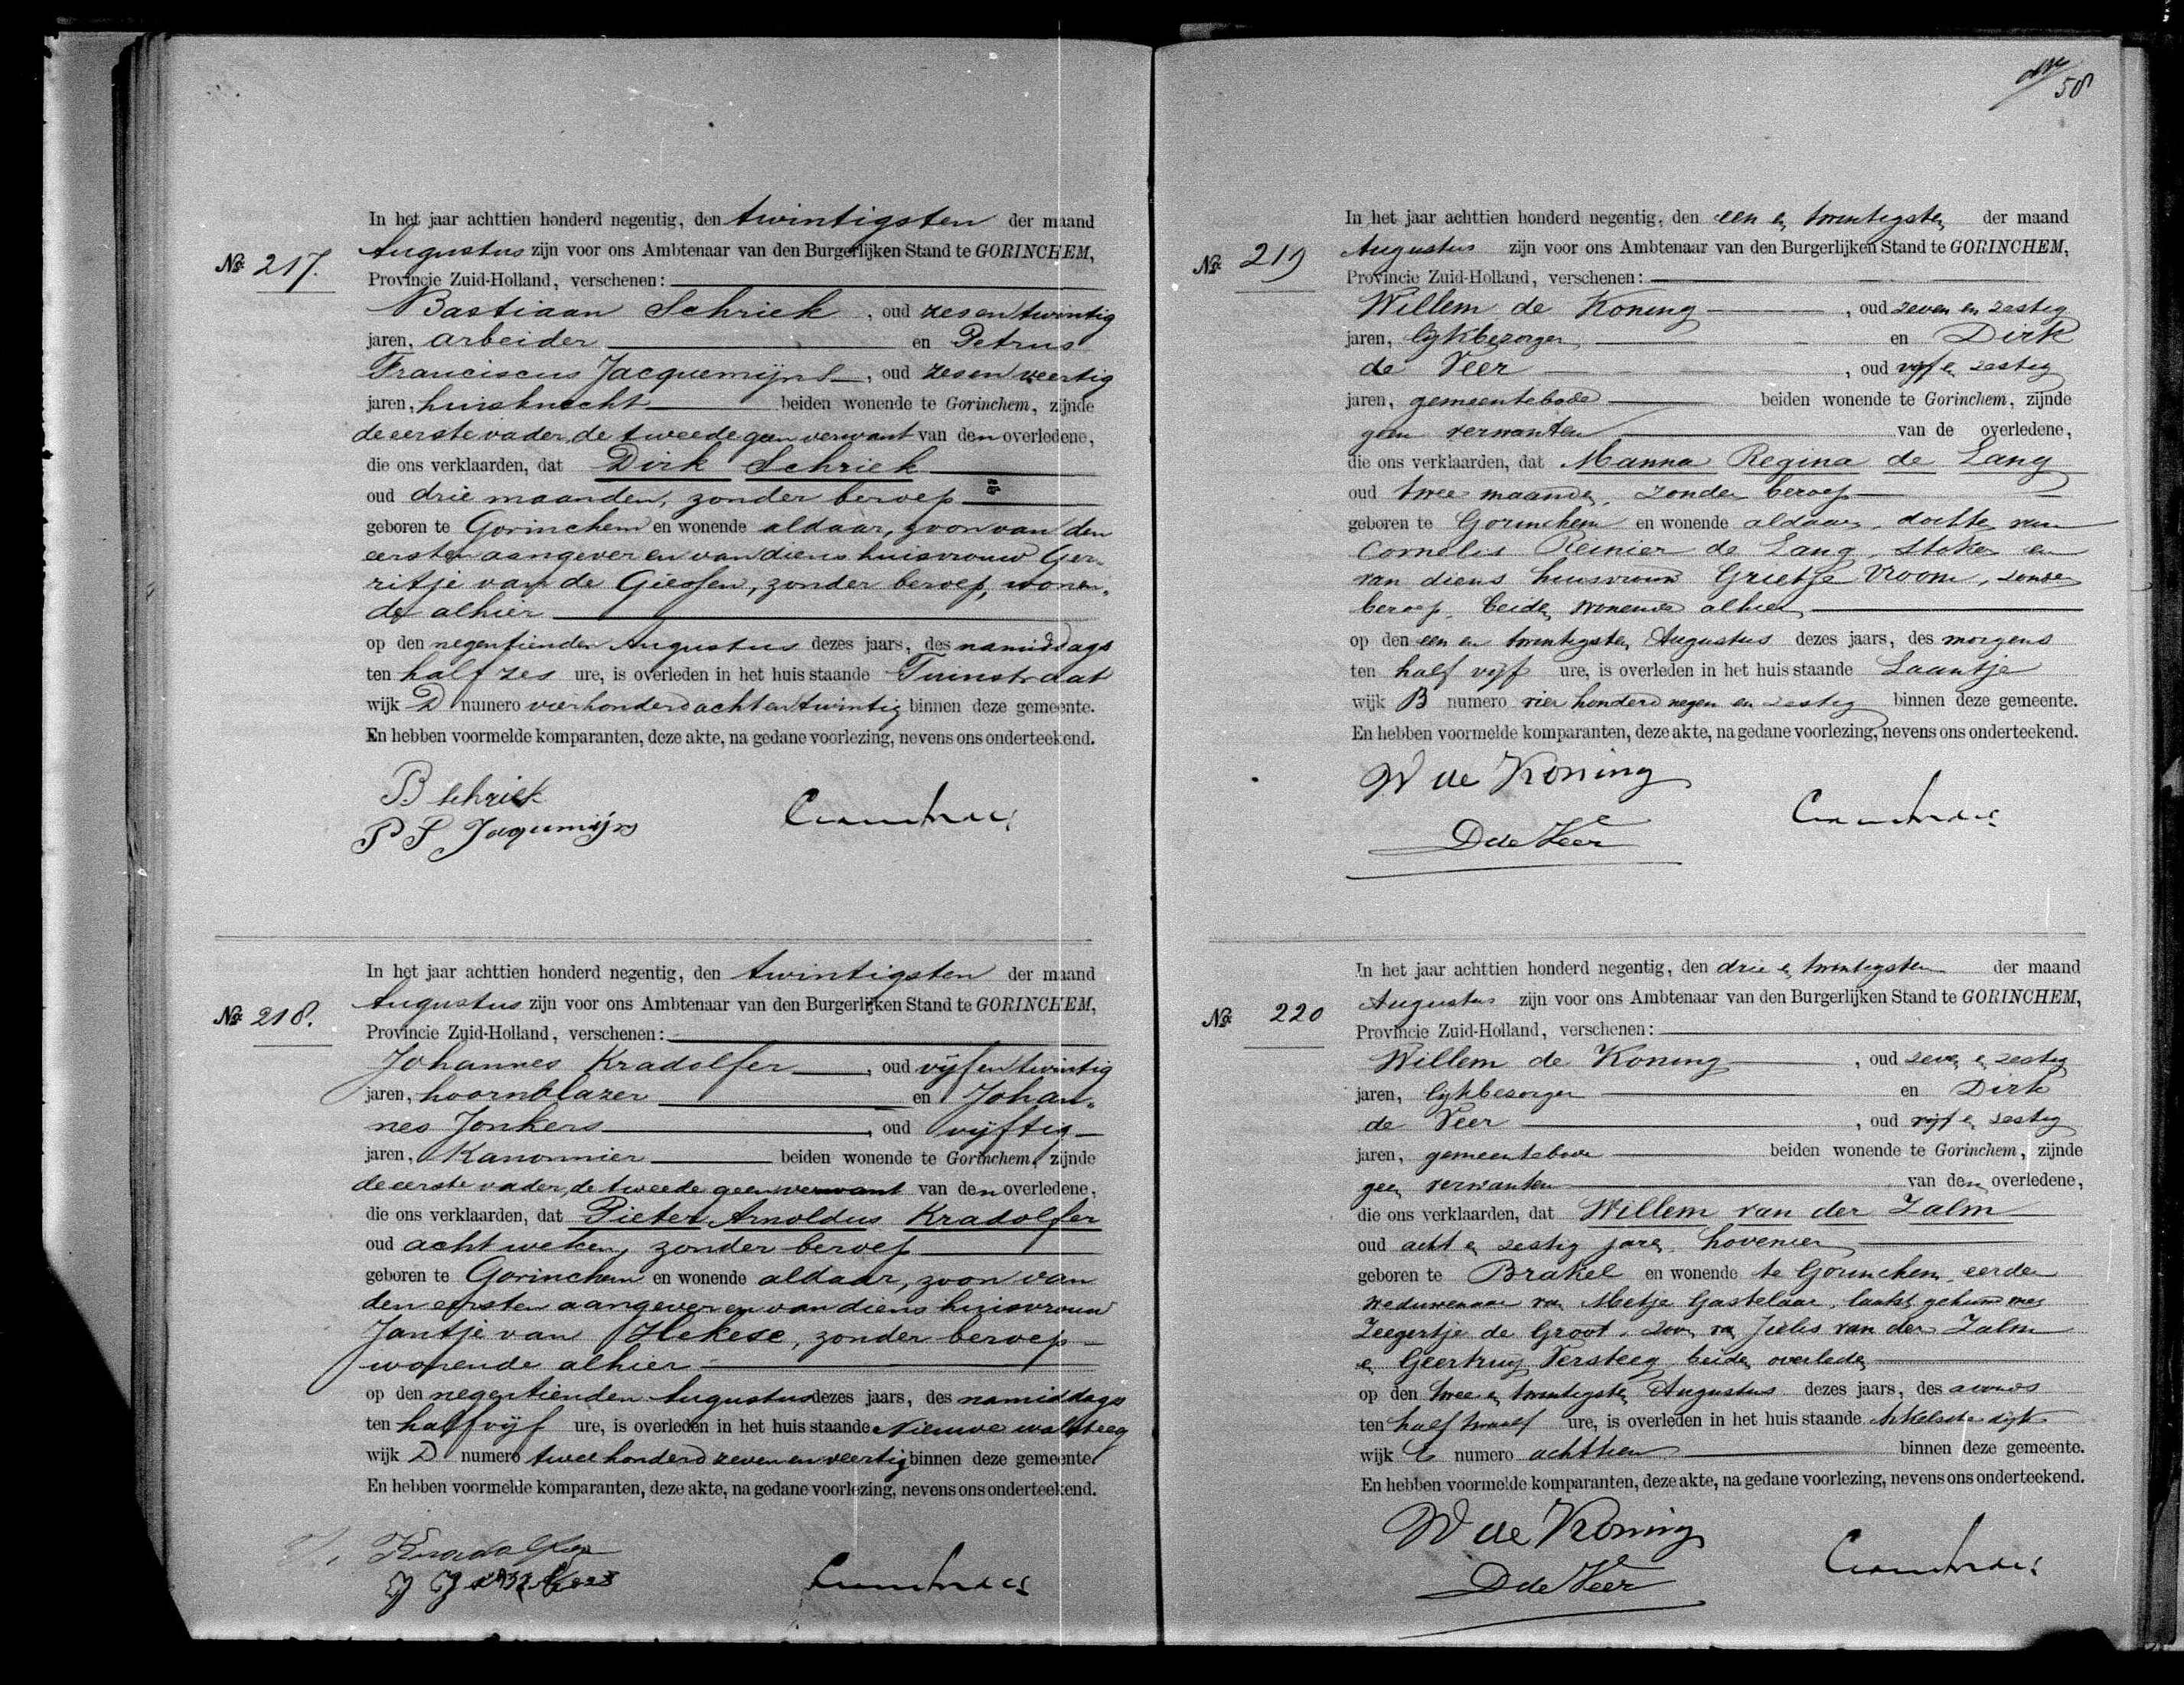 In het jaar achttien honderd negentig, den twintigsten der maand
No. 217. Augustus zijn voor ons Ambtenaar van den Burgerlijken Stand te GORINCHEM,
Provincie Zuid-Holland, verschenen:
Bastiaan Schriek, oud zesentwintig
jaren, arbeider en Petrus
Franciscus Jacquemijns, oud zesenveertig
jaren, huisknecht beiden wonende te Gorinchem, zijnde
de eerste vader, de tweede geen verwant van den overledene,
die ons verklaarden, dat Dirk Schriek
oud drie maanden, zonder beroep
geboren te Gorinchem en wonende aldaar, zoon van den
eersten aangever en van diens huisvrouw Ger-
ritje van de Giessen, zonder beroep, wonen-
de alhier
op den negentienden Augustus dezes jaars, des namiddags
ten half zes ure, is overleden in het huis staande Tuinstraat
wijk D numero vierhonderd achtentwintig binnen deze gemeente.
En hebben voormelde komparanten, deze akte, na gedane voorlezing, nevens ons onderteekend.
B Schriek
P F Jaqumijns
In het jaar achttien honderd negentig, den twintigsten der maand
No. 218. Augustus zijn voor ons Ambtenaar van den Burgerlijken Stand te GORINCHEM,
Provincie Zuid-Holland, verschenen:
Johannes Kradolfer, oud vijfentwintig
jaren, hoornblazer en Johan-
nes Jonkers, oud vijftig
jaren, Kanonnier beiden wonende te Gorinchem, zijnde
de eerste vader, de tweede geen verwant van den overledene,
die ons verklaarden, dat Pieter Arnoldus Kradolfer
oud acht weken, zonder beroep
geboren te Gorinchem en wonende aldaar, zoon van
den eersten aangever en van diens huisvrouw
Jantje van Hekese, zonder beroep
wonende alhier
op den negentienden Augustus dezes jaars, des namiddags
ten half vijf ure, is overleden in het huis staande Nieuwe walsteeg
wijk D numero tweehonderd zeven en veertig binnen deze gemeente.
En hebben voormelde komparanten, deze akte, na gedane voorlezing, nevens ons onderteekend.
Kradolfer
J Jonkers
58
In het jaar achttien honderd negentig, den een en twintigsten der maand
No. 219 Augustus zijn voor ons Ambtenaar van den Burgerlijken Stand te GORINCHEM,
Provincie Zuid-Holland, verschenen:
Willem de Koning, oud zeven en zestig
jaren, lijkbezorger en Dirk
de Veer, oud vijf en zestig
jaren, gemeentebode beiden wonende te Gorinchem, zijnde
geen verwanten van de overledene,
die ons verklaarden, dat Manna Regina de Lang
oud twee maanden, zonder beroep
geboren te Gorinchem en wonende aldaar, dochter van
Cornelis Reinier de Lang, stoker en
van diens huisvrouw Grietje Vroom, zonder
beroep, beiden wonende alhier
op den een en twintigsten Augustus dezes jaars, des morgens
ten half vijf ure, is overleden in het huis staande Laantje
wijk B numero vier honderd negen en zestig binnen deze gemeente.
En hebben voormelde komparanten, deze akte, na gedane voorlezing, nevens ons onderteekend.
W de Koning
D de Veer
In het jaar achttien honderd negentig, den drie en twintigsten der maand
No. 220 Augustus zijn voor ons Ambtenaar van den Burgerlijken Stand te GORINCHEM,
Provincie Zuid-Holland, verschenen:
Willem de Koning, oud zeven en zestig
jaren, lijkbezorger en Dirk
de Veer, oud vijf en zestig
jaren, gemeentebode beiden wonende te Gorinchem, zijnde
geen verwanten van den overledene,
die ons verklaarden, dat Willem van der Zalm
oud acht en zestig jaren, hovenier
geboren te Brakel en wonende te Gorinchem, eerder
weduwenaar van Metje Gastelaar, laatst gehuwd met
Zeegertje de Groot, zoon van Jielis van der Zalm
en Geertruij Versteeg, beiden overleden
op den twee en twintigsten Augustus dezes jaars, des avonds
ten half twaalf ure, is overleden in het huis staande Arkelsche dijk
wijk E numero achttien binnen deze gemeente.
En hebben voormelde komparanten, deze akte, na gedane voorlezing, nevens ons onderteekend.
W de Koning
D de Veer